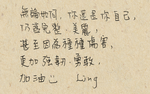 無論如何，你還是你自己，
你還完整、美麗，
甚至因為種種傷害，
更加強韌、勇敢，
加油 Ling